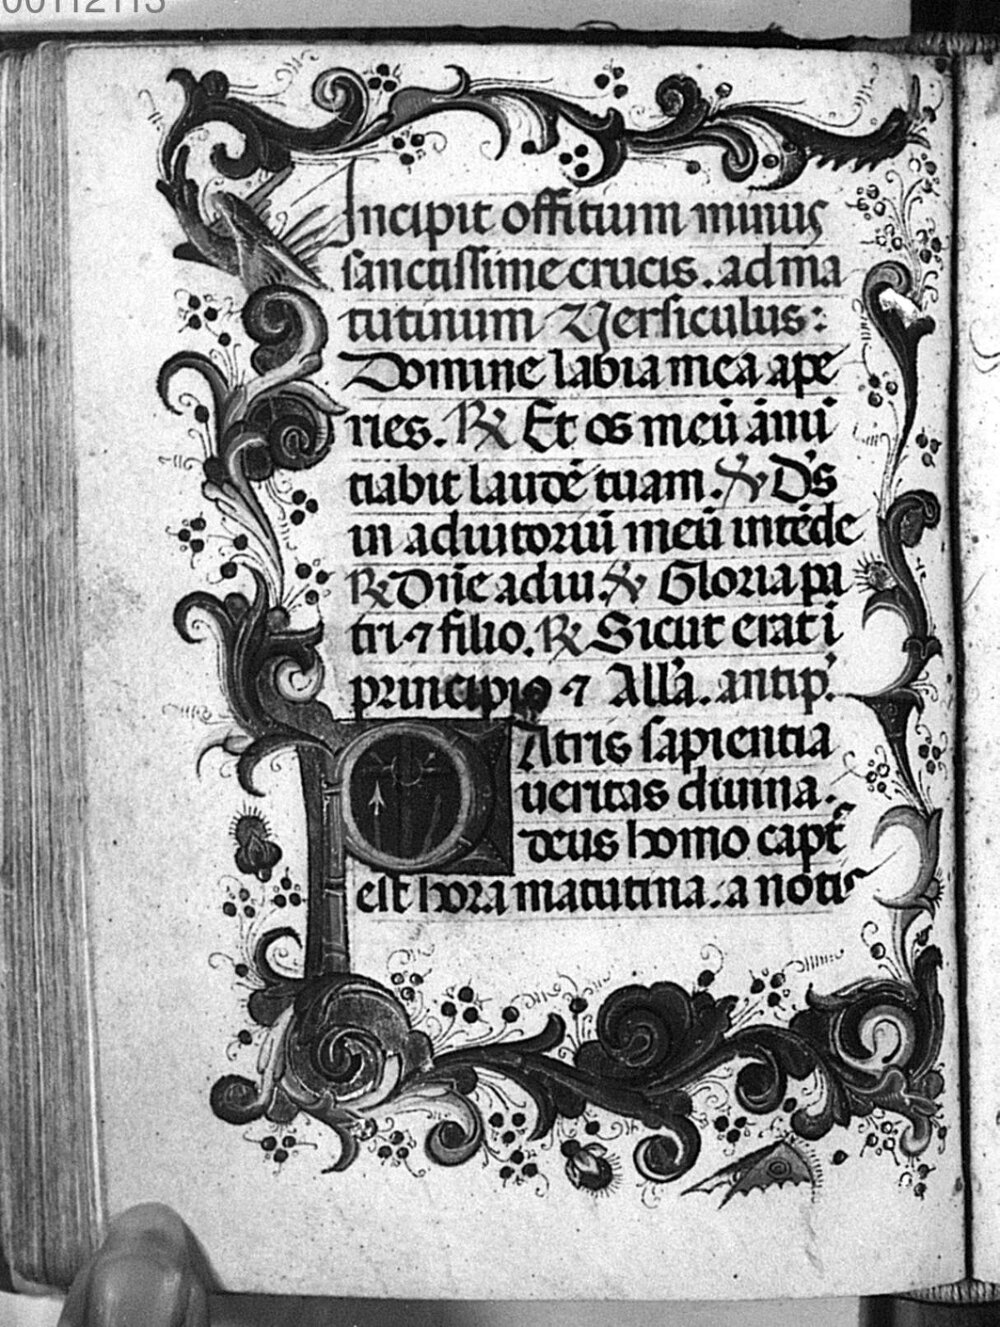 00112113
Incipit offitium minus
sanctissime crucis. ad ma
tutinum Versiculus:
Domine labia mea ape
ries. ℟ Et os meū ānū
tiabit laudē tuam. ℣ Ds̄
in adiutoriū meū intēde
℟ Dn̄e adiu. ℣ Gloria pa
tri ⁊ filio. ℟ Sicut erat ī
principio ⁊ Alla. antip.
PAtris sapientia
ueritas diuina.
deus homo capt᷒
est hora matutina. a notis